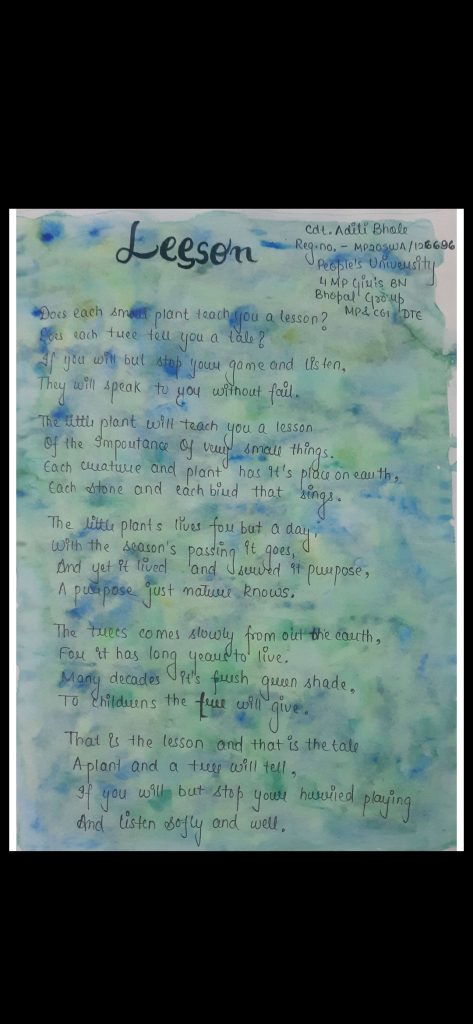 Lesson
Cdt. Aditi Bhale
Reg.no. - MP20SWA/126696
People's University
4 MP Girls BN
Bhopal Group
MP& CG DTE
Does each small plant teach you a lesson?
Does each tree tell you a tale?
If you will but stop your game and listen,
They will speak to you without fail.
The little plant will teach you a lesson
Of the Importance Of very small things.
Each creature and plant has It's place on earth,
Each stone and each bird that sings.
The little plants lives for but a day,
With the season's passing it goes,
And yet it lived and served it purpose,
A purpose just nature knows.
The trees comes slowly from out the earth,
For it has long years to live.
Many decades it's fresh green shade,
To childrens the free will give.
That is the lesson and that is the tale
A plant and a tree will tell,
If you will but stop your hurried playing
And listen sofly and well.